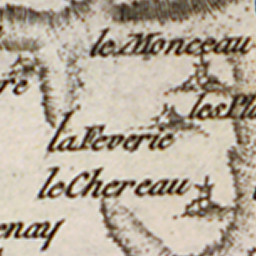 le Monceau
re
les Pl
la Feverie
le Chereau
enay